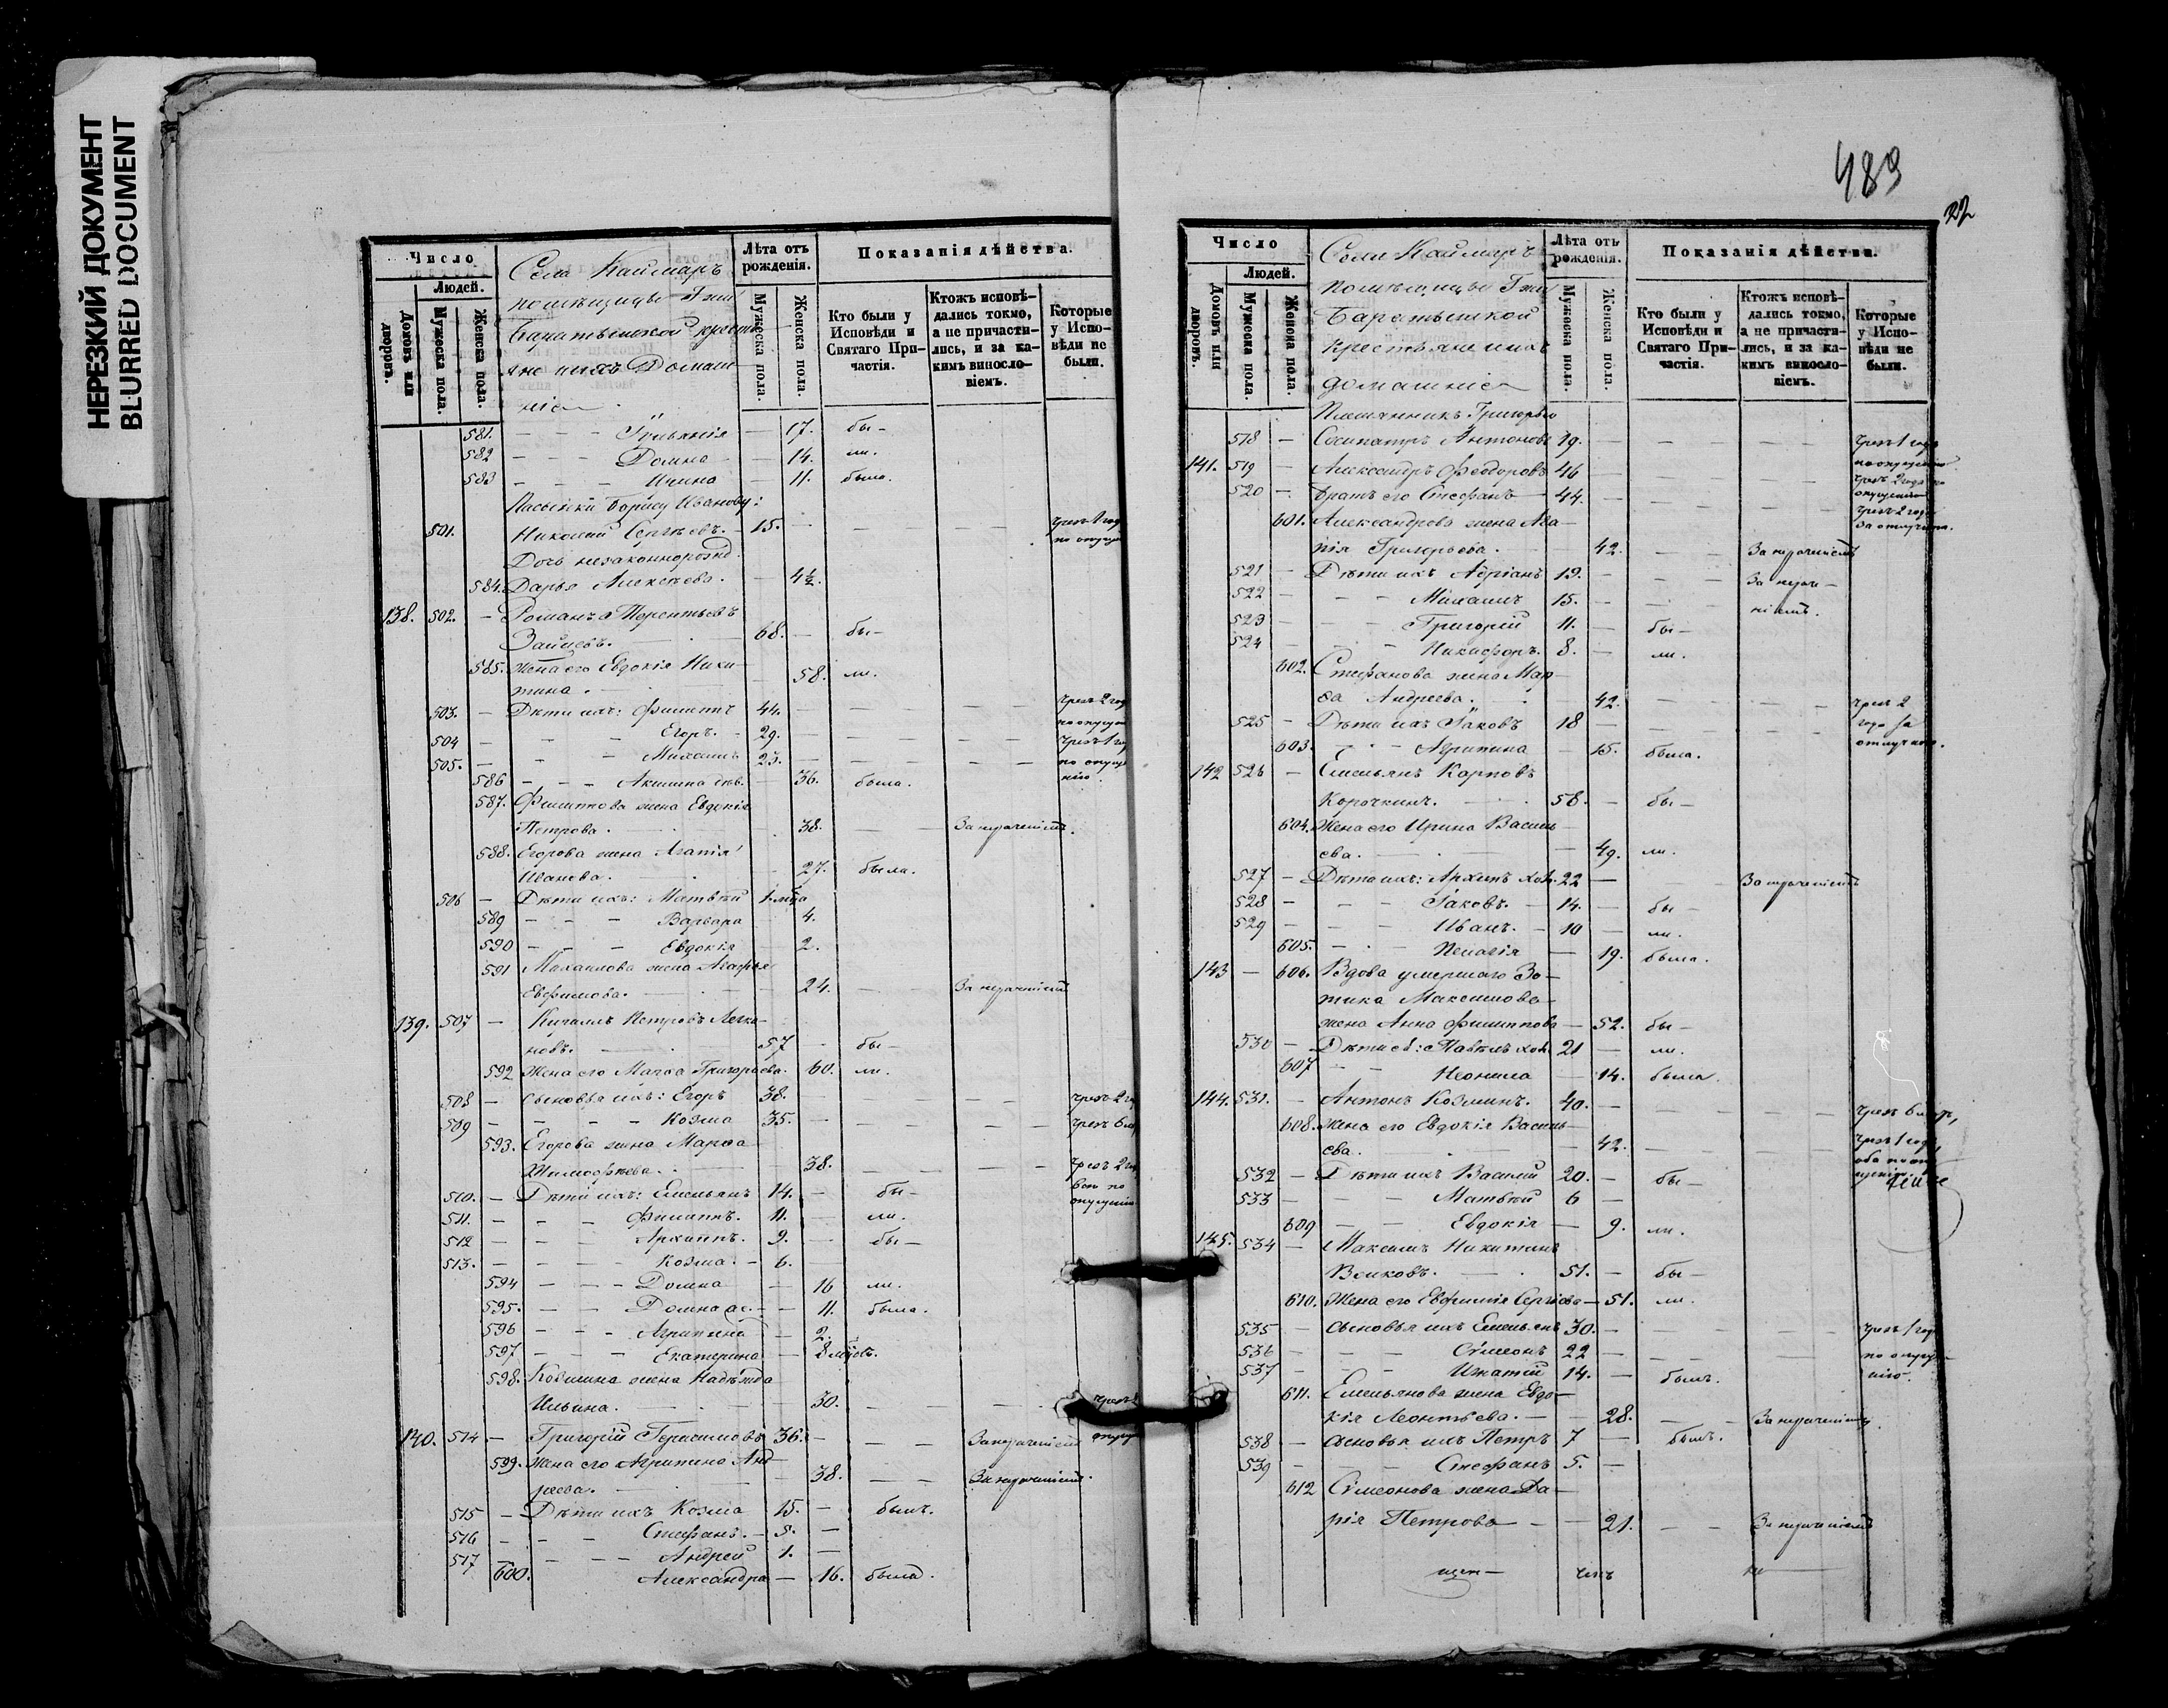 НЕРЕЗКИЙ ДОКУМЕНТ
BLURRED DOCUMENT
Число
Людей.
Домовъ или дворовъ.
Мужеска пола.
Женска пола.
Села Каймаръ
помѣщицы Гжи
Баратынской кресть-
яне и ихъ Домаш-
ніе
Лѣта отъ рожденія.
Мужеска пола.
Женска пола.
Показанія дѣйства.
Кто были у Исповѣди и Святаго Причастія.
Ктожъ исповѣдались токмо, а не причастились, и за какимъ винословіемъ.
Которые у Исповѣди не были.
581. 17. бы-
582 Домна 14. ли.
583 Ирина 11. были.
Пасынки Борису Иванову:
501. Николай Сергѣевъ. 15. чрезъ 1 год
Дочь незаконнорожд.
584. Дарья Алексѣева. 4½.
138. 502. Романъ Терентьевъ
Зайцевъ. 68. бы-
585. Жена его Евдокія Ники-
тина. 58. ли.
503. Дѣти ихъ: Филиппъ 44. чрезъ 2 год
504 Егоръ. 29. чрезъ 1 год
505. Михаилъ 23. по опущ
586 Акилина дѣв. 36. была.
587. Филиппова жена Евдокія
Петрова. 38. За нерачениемъ.
588. Егорова жена Агапія
Иванова. 27. была.
506 Дѣти ихъ: Матвѣй 1
589 Варвара 4.
590 Евдокія 2.
591 Михаилова жена Агафья
Евфимова. 24. За нерачениемъ
139. 507 Кириллъ Петровъ
новъ. 57 бы-
592 Жена его Марѳа Григорьева. 60. ли.
508 Сыновья ихъ: Егоръ 38. чрезъ 2 го
509 Козма 35. чрезъ 6
593. Егорова жена Марѳа
Тимофѣева. 38. чрезъ 2 го
510. Дѣти ихъ: Емельянъ 14. бы-
511. Филиппъ. 11. ли.
512 Архиппъ. 9. бы-
513. Козма. 6.
594 Домна 16 ли.
595. Домна 11. была.
596 Агрипина 2.
597 Екатерина 8
598. Козмина жена Надѣжда
Ильина. 30. чрезъ
140. 514 Григорій Герасимовъ 36. За нерачениемъ
599. Жена его Агрипина Анд-
реева. 38. За нерачениемъ.
515 Дѣти ихъ Козма 15. былъ.
516 Стефанъ. 5.
517 Андрей 1.
600. Александра 16. была.
489
Число
Людей.
Домовъ или дворовъ.
Мужеска пола.
Женска пола.
Села Каймаръ
помѣщицы Гжи
Баратынской
крестьяне и ихъ
домашніе
Лѣта отъ рожденія.
Мужеска пола.
Женска пола.
Показанія дѣйства.
Кто были у Исповѣди и Святаго Причастія.
Ктожъ исповѣдались токмо, а не причастились, и за какимъ винословіемъ.
Которые у Исповѣди не были.
Племянникъ Григорью
518 Сосипатръ Антоновъ 19. чрезъ 1 годъ
141. 519 Александръ Феодоровъ 46 чрезъ 2 года
520 Братъ его Стефанъ 44. чрезъ 2 года
601. Александрова жена Ага-
пія Григорьева. 42. За нерачениемъ
521 Дѣти ихъ Адріанъ 19. За нераче-
522 Михаилъ 15. ніемъ.
523 Григорій 11. бы-
524 Никифоръ. 8. ли.
602. Стефанова жена Мар-
ѳа Андреева. 42. чрезъ 2
525 Дѣти ихъ Іаковъ 18 года за
603. Агрипина 15. была. отлучкою.
142 526 Емельянъ Карповъ
Корочкинъ. 58. бы-
604. Жена его Ирина Василь-
ева. 49. ли.
527 Дѣти ихъ: Архипъ хол. 22 За нерачениемъ
528 Іаковъ. 14. бы-
529 Иванъ. 10 ли.
605. Пелагія 19. была.
143 606. Вдова умершаго Зо-
тика Максимова
жена Анна Филиппова 52. бы-
530 Дѣти ея: Павелъ хол. 21 ли.
607 Неонила 14. была.
144. 531. Антонъ Козминъ. 40. чрезъ 6
608. Жена его Евдокія Василь-
ева. 42. чрезъ 1 годъ
532 Дѣти ихъ Василій 20. бы-
533 Матвѣй 6
609 Евдокія 9. ли.
145. 534 Максимъ Никитинъ
Волковъ. 51. бы-
610. Жена его Евфимія Сергѣева 51. ли.
535 Сыновья ихъ Емельянъ 30. чрезъ 1 годъ
536 Сѵмеонъ 22 по опуще-
537 Игнатій 14. былъ. нію.
611. Емельянова жена Евдо-
кія Леонтьева. 28. За нерачениемъ.
538 Сыновья ихъ Петръ 7 былъ.
539 Стефанъ 5.
612 Сѵмеонова жена Да-
рія Петрова 21. За нерачениемъ